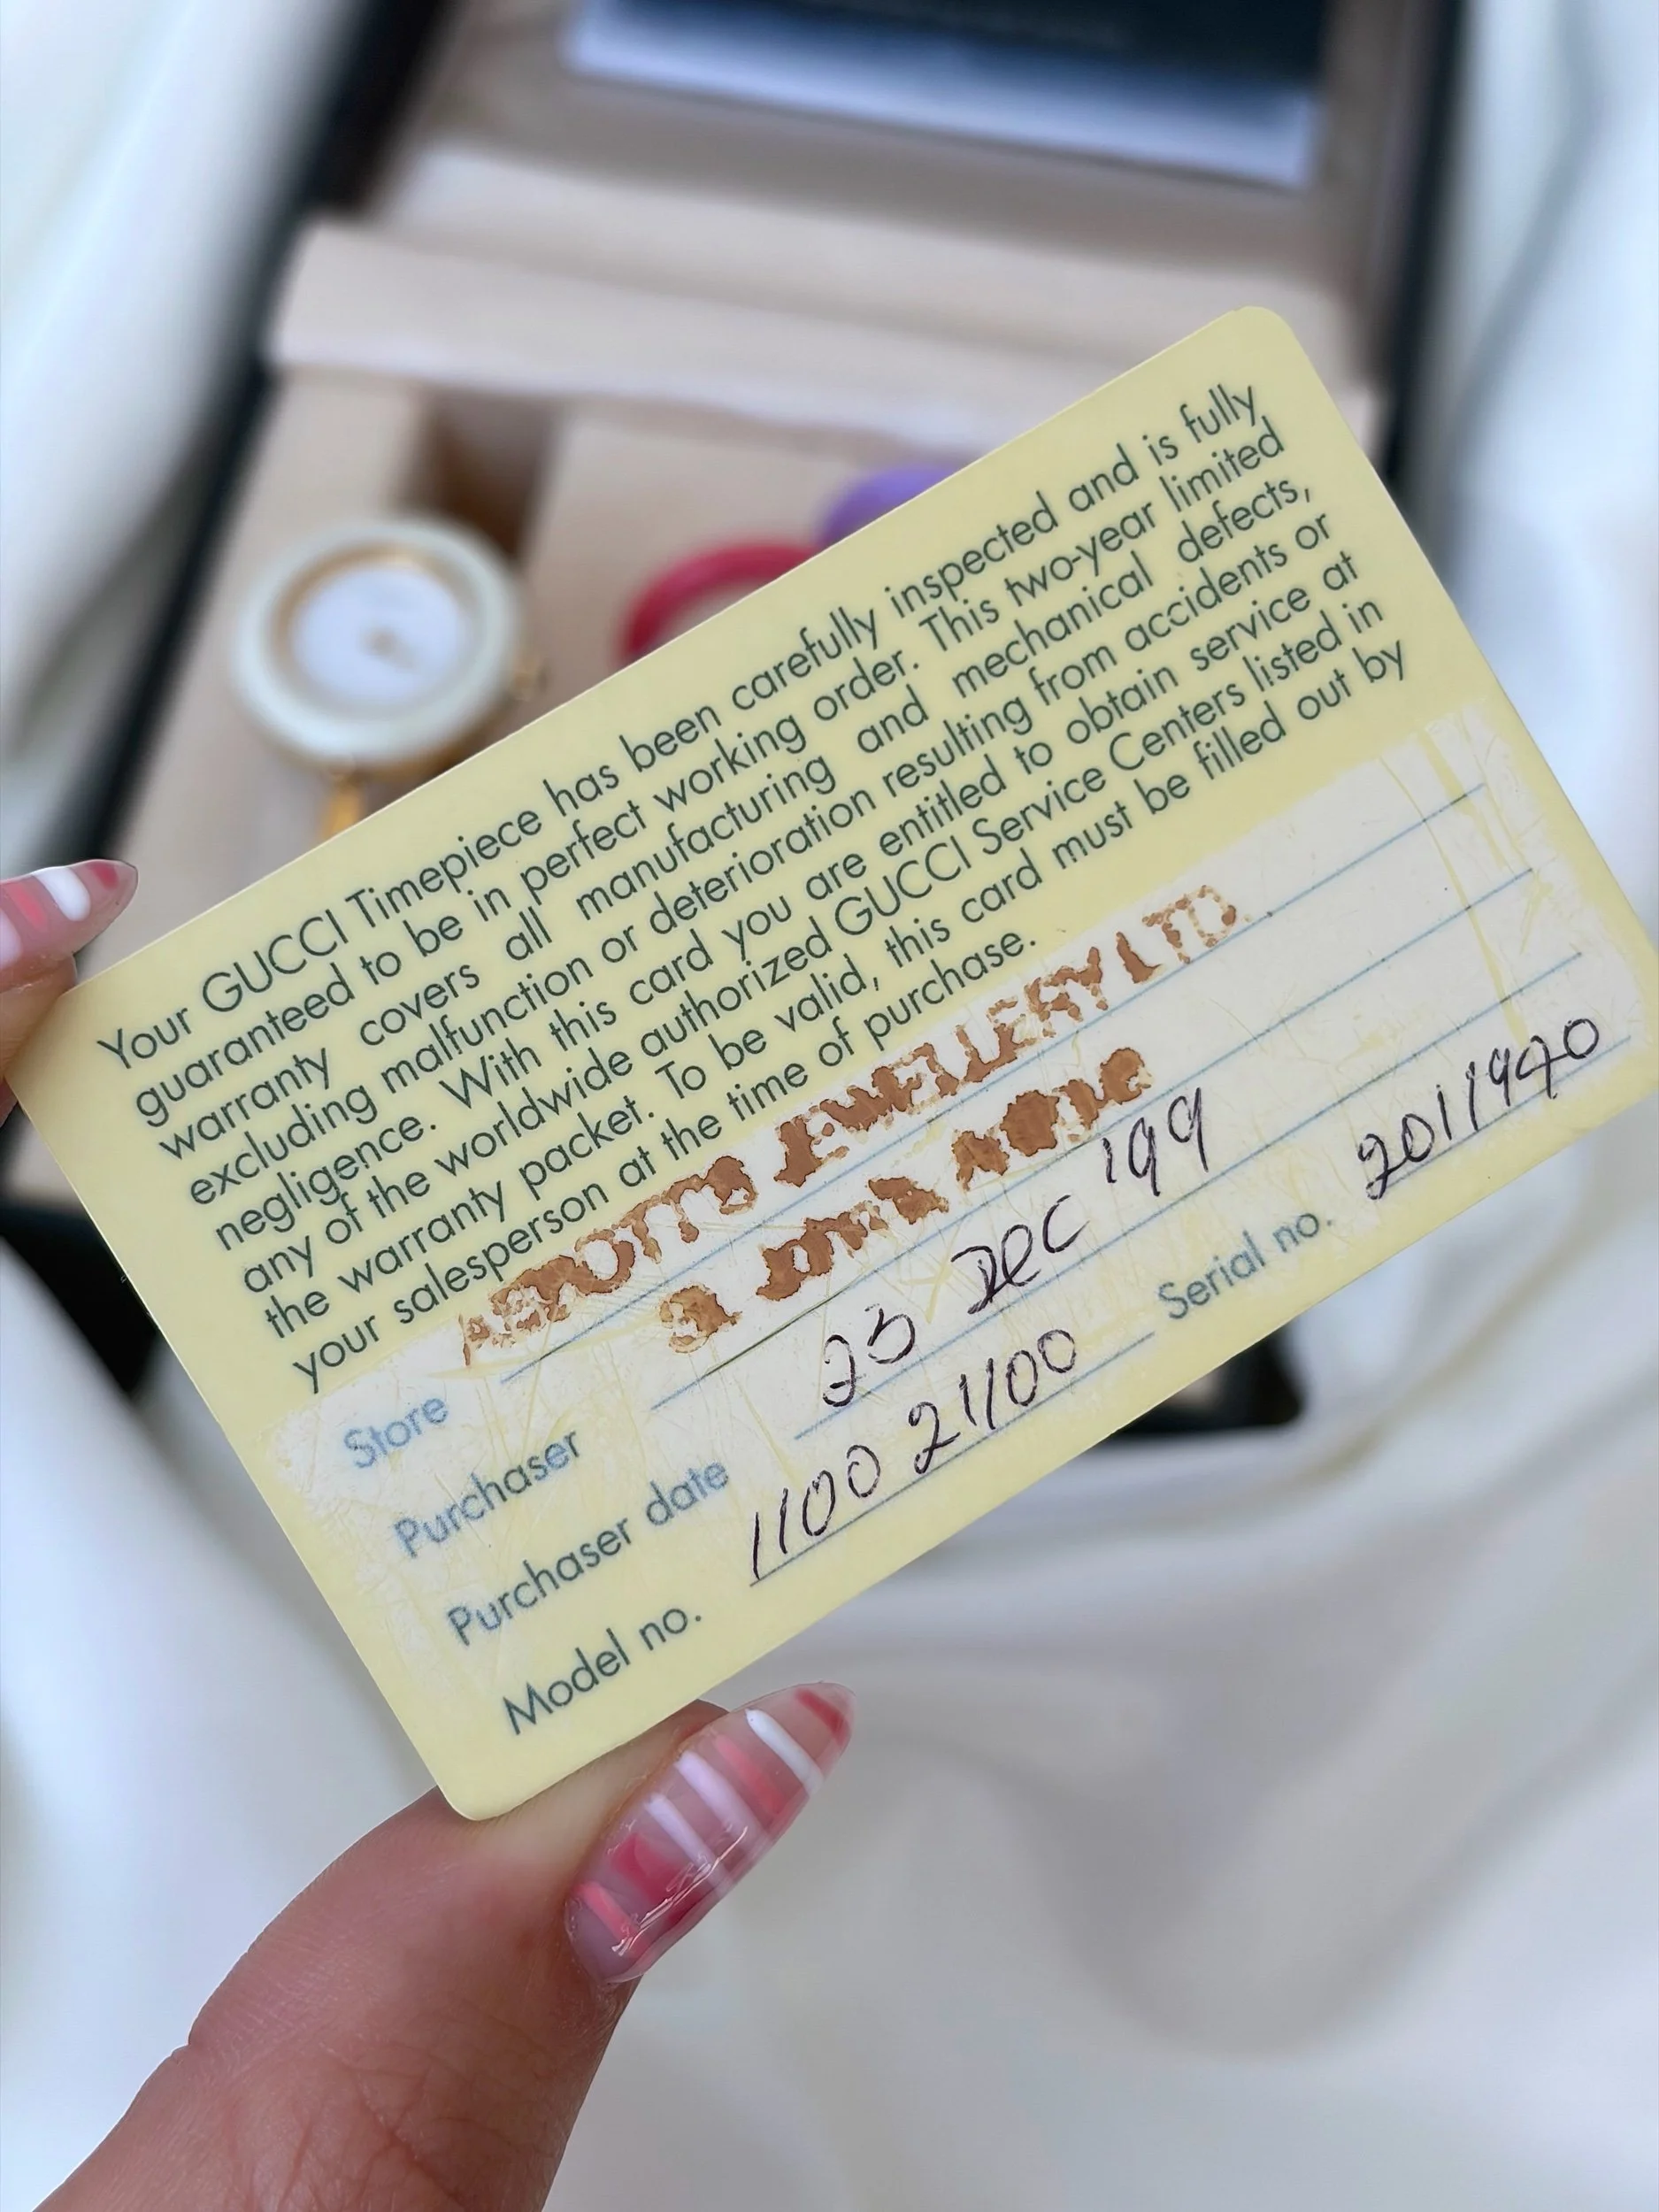 Your GUCCI Timepiece has been carefully inspected and is fully
guaranteed to be in perfect working order. This two-year limited
warranty covers all manufacturing and mechanical defects,
excluding malfunction or deterioration resulting from accidents or
negligence. With this card you are entitled to obtain service at
any of the worldwide authorized GUCCI Service Centers listed in
the warranty packet. To be valid, this card must be filled out by
your salesperson at the time of purchase.
Store ABBOTTS JEWELLERY LTD.
Purchaser
Purchaser date 25 Dec '99
Model no. 1100 21100 Serial no. 2011940